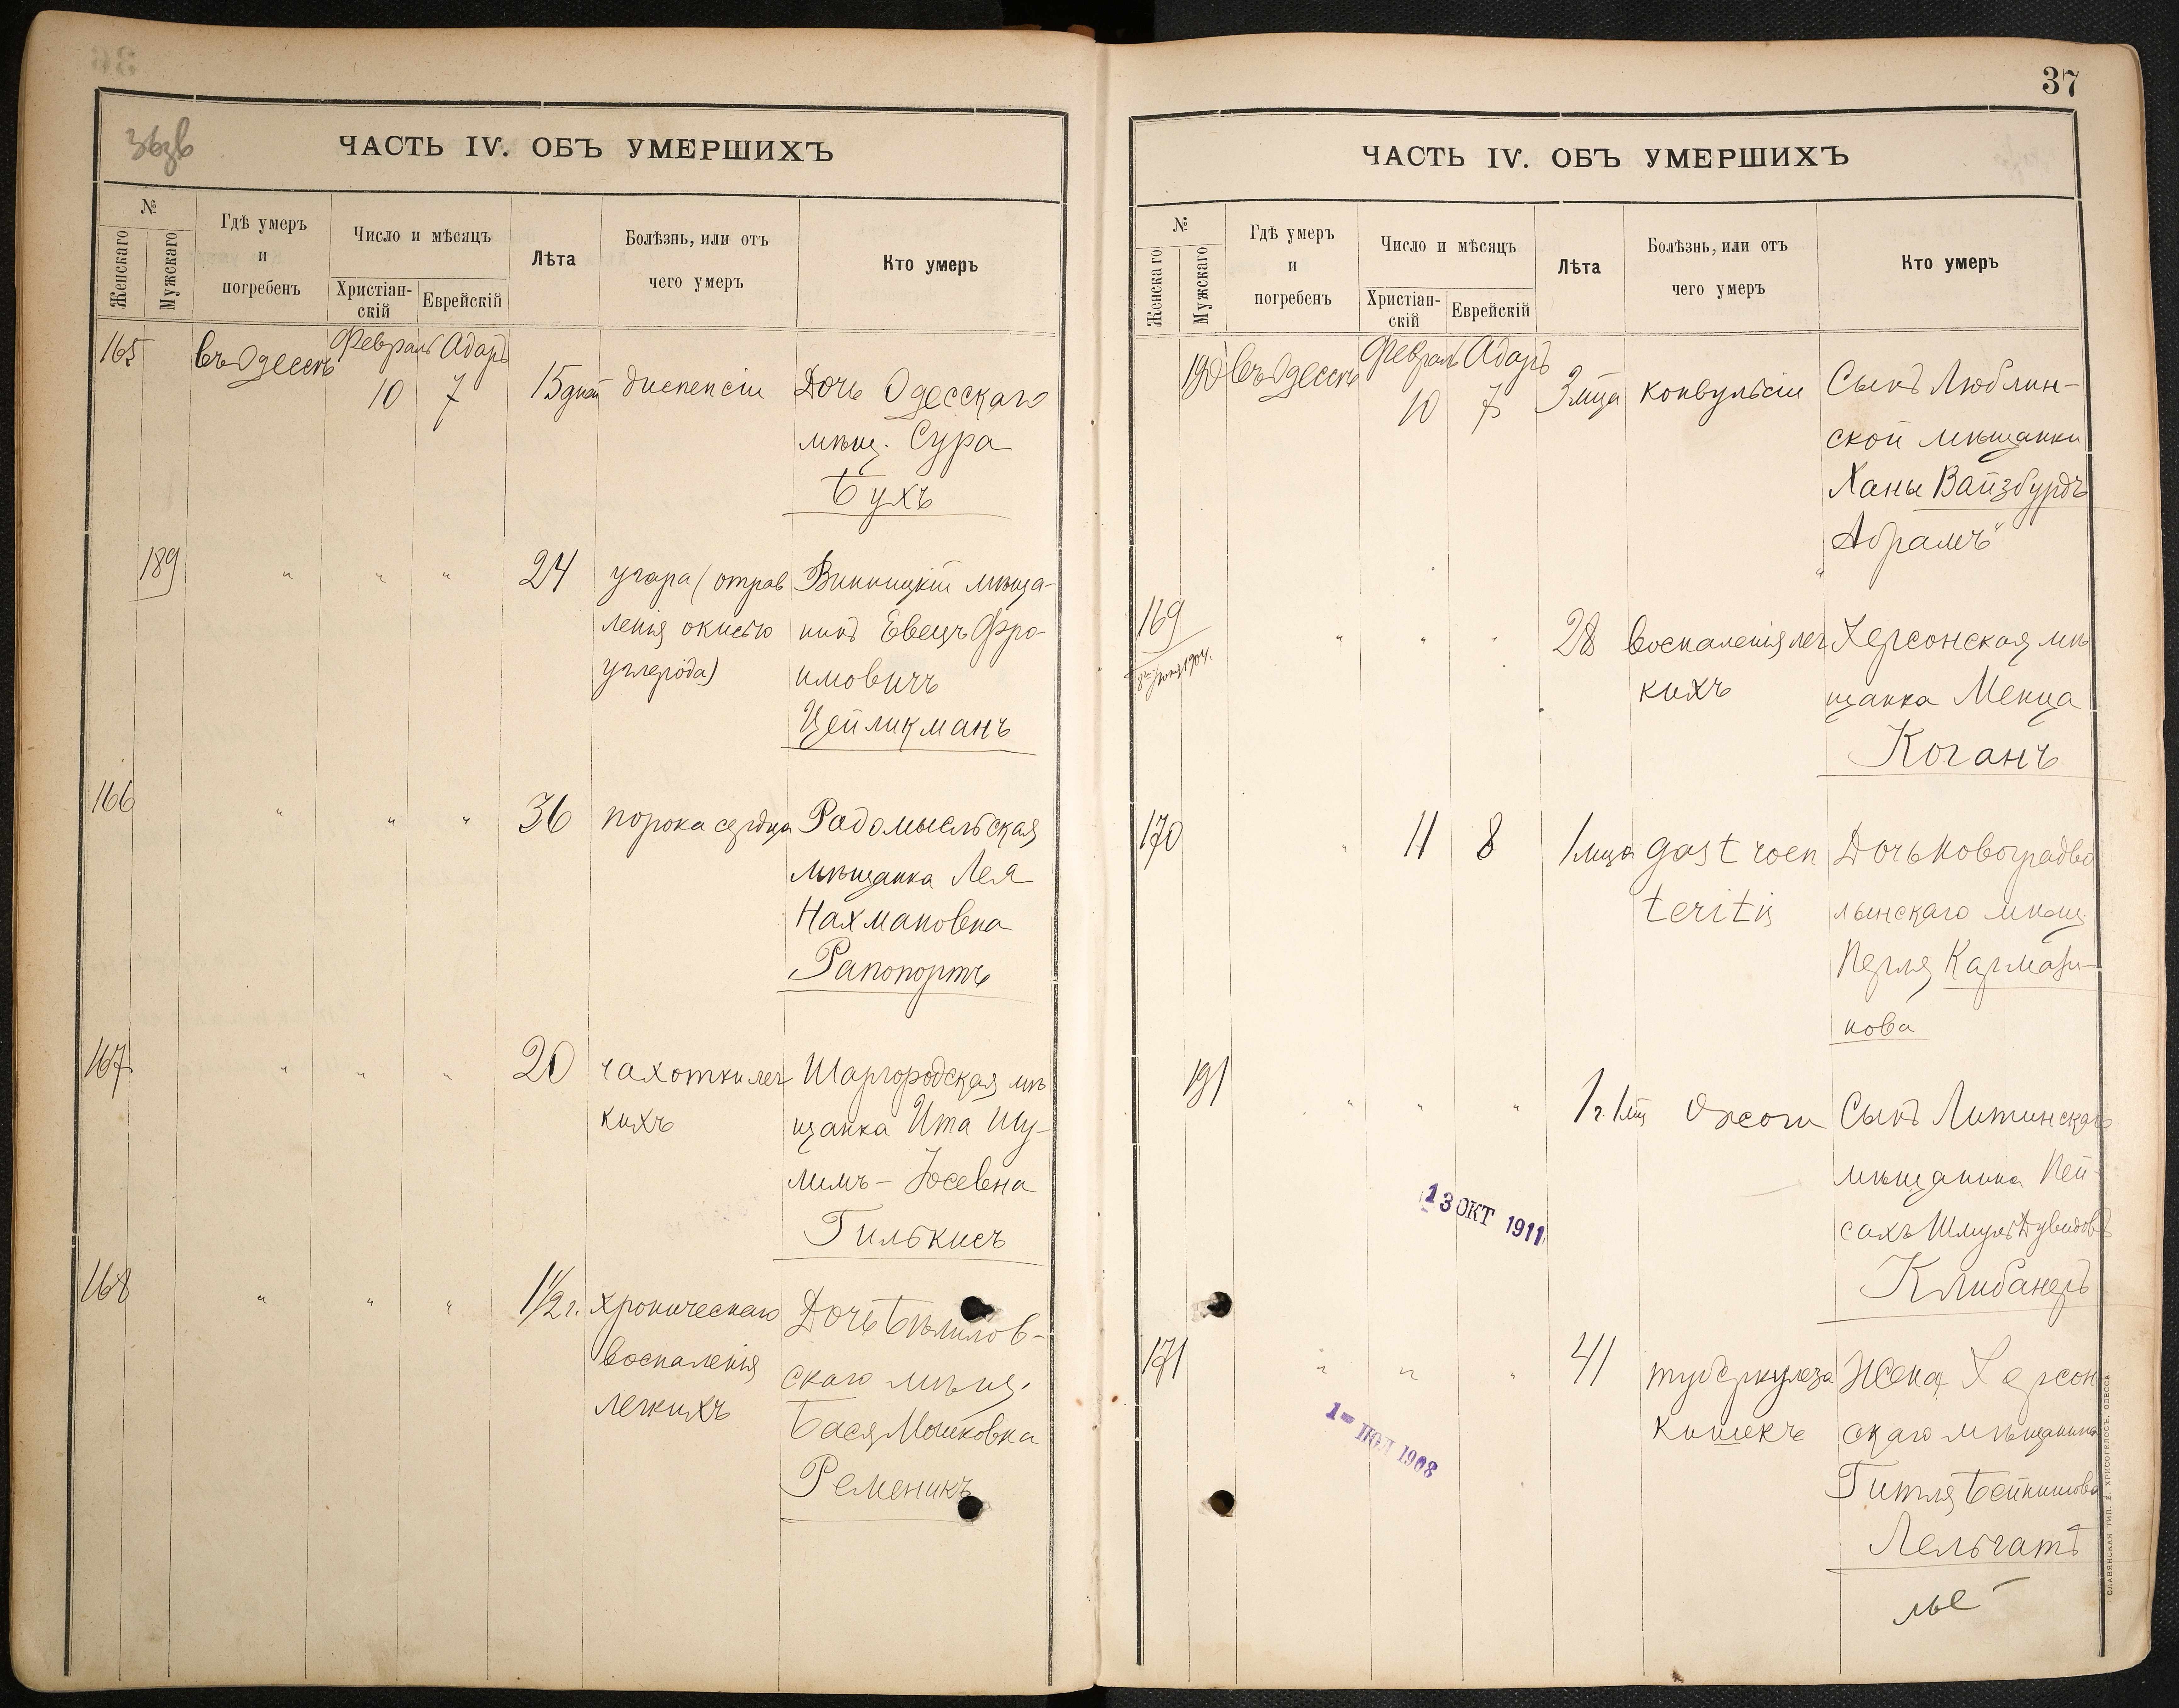 36зв
ЧАСТЬ IV. ОБЪ УМЕРШИХЪ
№
Женскаго
Мужскаго
Гдѣ умеръ
и
погребенъ
Число и мѣсяцъ
Христіан-
скій
Еврейскій
Лѣта
Болѣзнь, или отъ
чего умеръ
Кто умеръ
165
въ Одессѣ
Февраль Адаръ
10 7
15 дней
диспепсіи
Дочь Одесскаго
мѣщ. Сура
Бухъ
189
" " "
24
угара (отрав
ленія окисью
углерода)
Винницкій мѣща-
нинъ Евецъ Фро-
имовичъ
Цейликманъ
166
" " "
36
порока сердца
Радомысльская
мѣщанка Лея
Нахмановна
Рапопортъ
167
" " "
20
чахотки лег
кихъ
Шаргородская мѣ
щанка Ита Шу-
лимъ-Іосевна
Гилькисъ
168
" " "
1 1/2 г.
хроническаго
воспаленія
легкихъ
Дочь Бѣлилов-
скаго мѣщ.
Бася Мошковна
Ременикъ
37
ЧАСТЬ IV. ОБЪ УМЕРШИХЪ
№
Женскаго
Мужскаго
Гдѣ умеръ
и
погребенъ
Число и мѣсяцъ
Христіан-
скій
Еврейскій
Лѣта
Болѣзнь, или отъ
чего умеръ
Кто умеръ
190
въ Одессѣ
Февраль Адаръ
10 7
3 мѣца
конвульсіи
Сынъ Люблин-
ской мѣщанки
Ханы Вайзбурдъ
"Абрамъ"
169
1904.
" " "
28
воспаленія лег
кихъ
Херсонская мѣ
щанка Менца
Коганъ
170
"
11 8
1 мца
gastroen
teritis
Дочь Новоградво
лынскаго мѣщ.
Перля Кармази-
нова
191
" " "
1 г. 1 мц
Ожоги
Сынъ Литинскаго
мѣщанина Пей-
сахъ Шмуль Дувидовъ
Клибанеръ
13 ОКТ 1911
171
" " "
41
туберкулеза
кишекъ
Жена Херсон
скаго мѣщанина
Гитля Бейнишова
Лельчатъ
1- ПОЛ 1908
СЛАВЯНСКАЯ ТИП. Е. ХРИСОГЕЛОСЪ, ОДЕССА